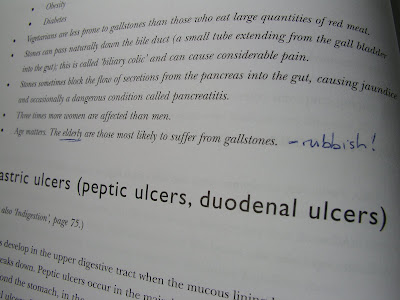 • Obesity
• Diabetes
• Vegetarians are less prone to gallstones than those who eat large quantities of red meat.
• Stones can pass naturally down the bile duct (a small tube extending from the gall bladder
into the gut); this is called 'biliary colic' and can cause considerable pain.
• Stones sometimes block the flow of secretions from the pancreas into the gut, causing jaundice
and occasionally a dangerous condition called pancreatitis.
• Three times more women are affected than men.
• Age matters. The elderly are those most likely to suffer from gallstones. - rubbish!
astric ulcers (peptic ulcers, duodenal ulcers)
also 'Indigestion', page 75.)
s develop in the upper digestive tract when the mucous lining
eaks down. Peptic ulcers occur in the
ond the stomach, in the